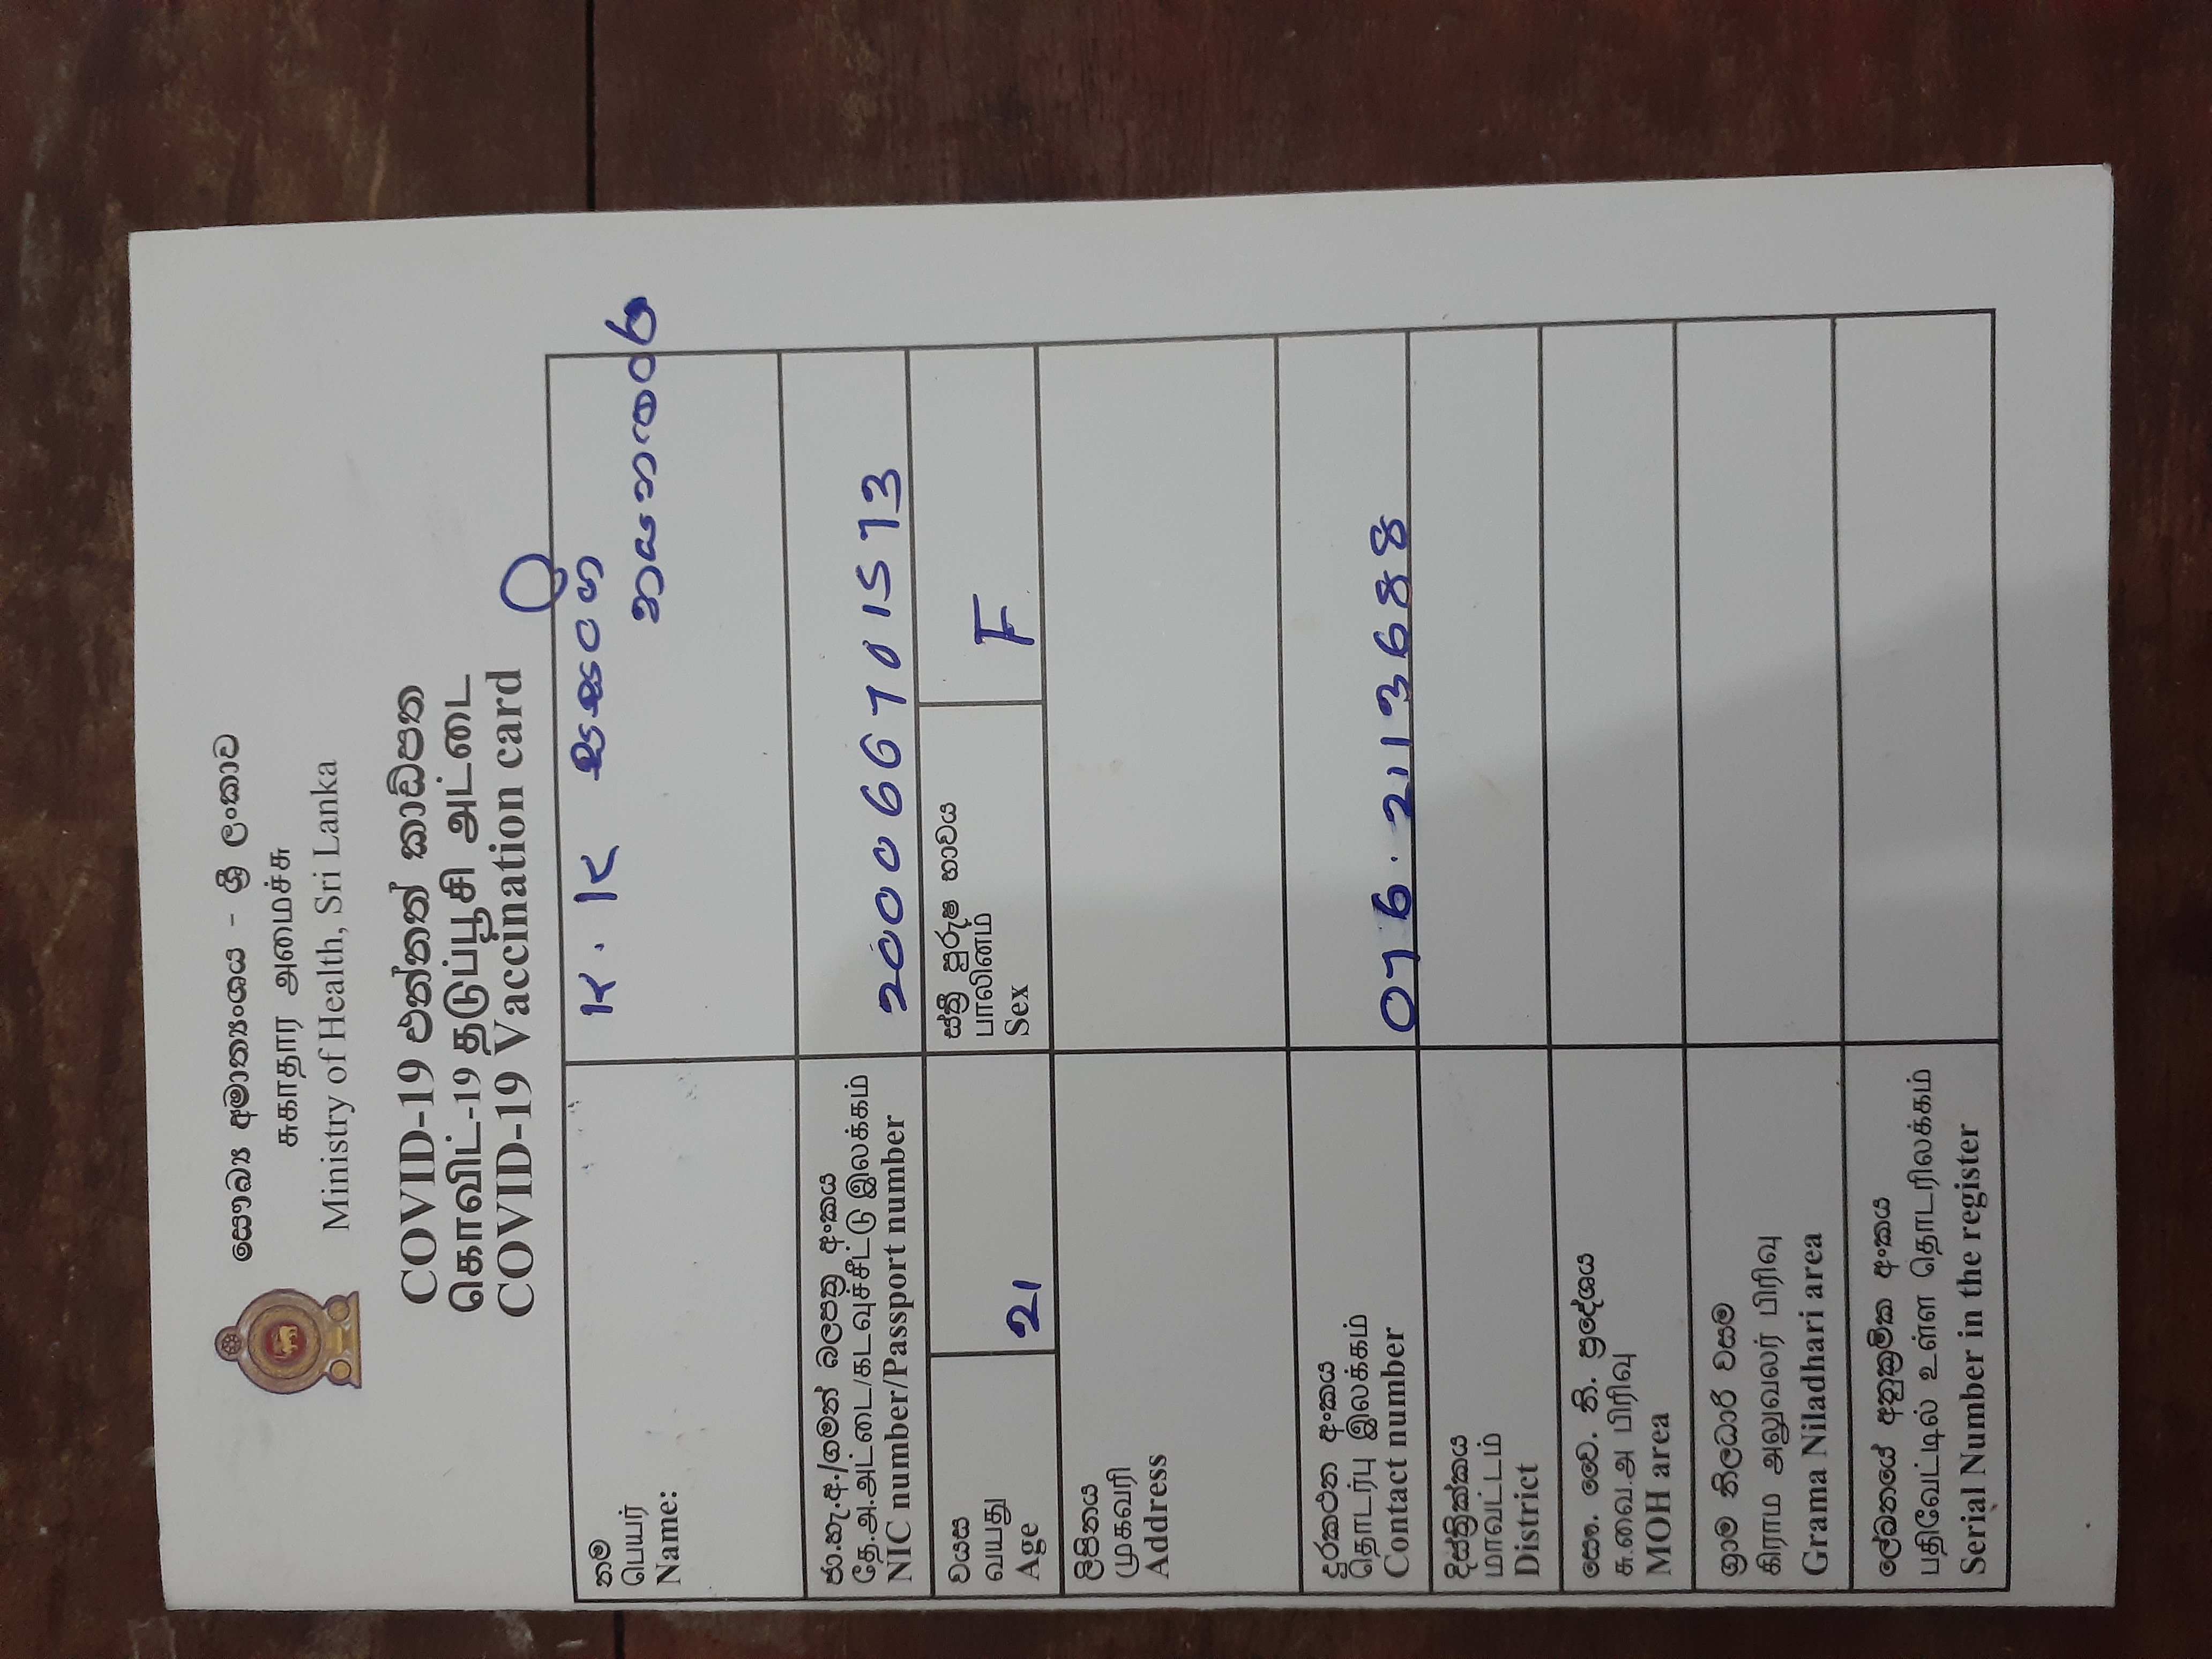 සෞඛ්‍ය අමාත්‍යංශය - ශ්‍රී ලංකාව
சுகாதார அமைச்சு
Ministry of Health, Sri Lanka
COVID-19 එන්නත් කාඩ්පත
கொவிட்-19 தடுப்பூசி அட்டை
COVID-19 Vaccination card
නම
பெயர்
Name:
K. K සසංගි
නයනතාරා
ජා.හැ.අ./ගමන් බලපත්‍ර අංකය
தே.அ.அட்டை/கடவுச்சீட்டு இலக்கம்
NIC number/Passport number
200066701573
වයස
வயது
Age
21
ස්ත්‍රී පුරුෂ භාවය
பாலினம்
Sex
F
ලිපිනය
முகவரி
Address
දුරකථන අංකය
தொடர்பு இலக்கம்
Contact number
076. 2113688
දිස්ත්‍රික්කය
மாவட்டம்
District
සෞ. වෛ. නි. ප්‍රදේශය
சு.வை.அ பிரிவு
MOH area
ග්‍රාම නිලධාරි වසම
கிராம அலுவலர் பிரிவு
Grama Niladhari area
ලේඛනයේ අනුක්‍රමික අංකය
பதிவேட்டில் உள்ள தொடரிலக்கம்
Serial Number in the register